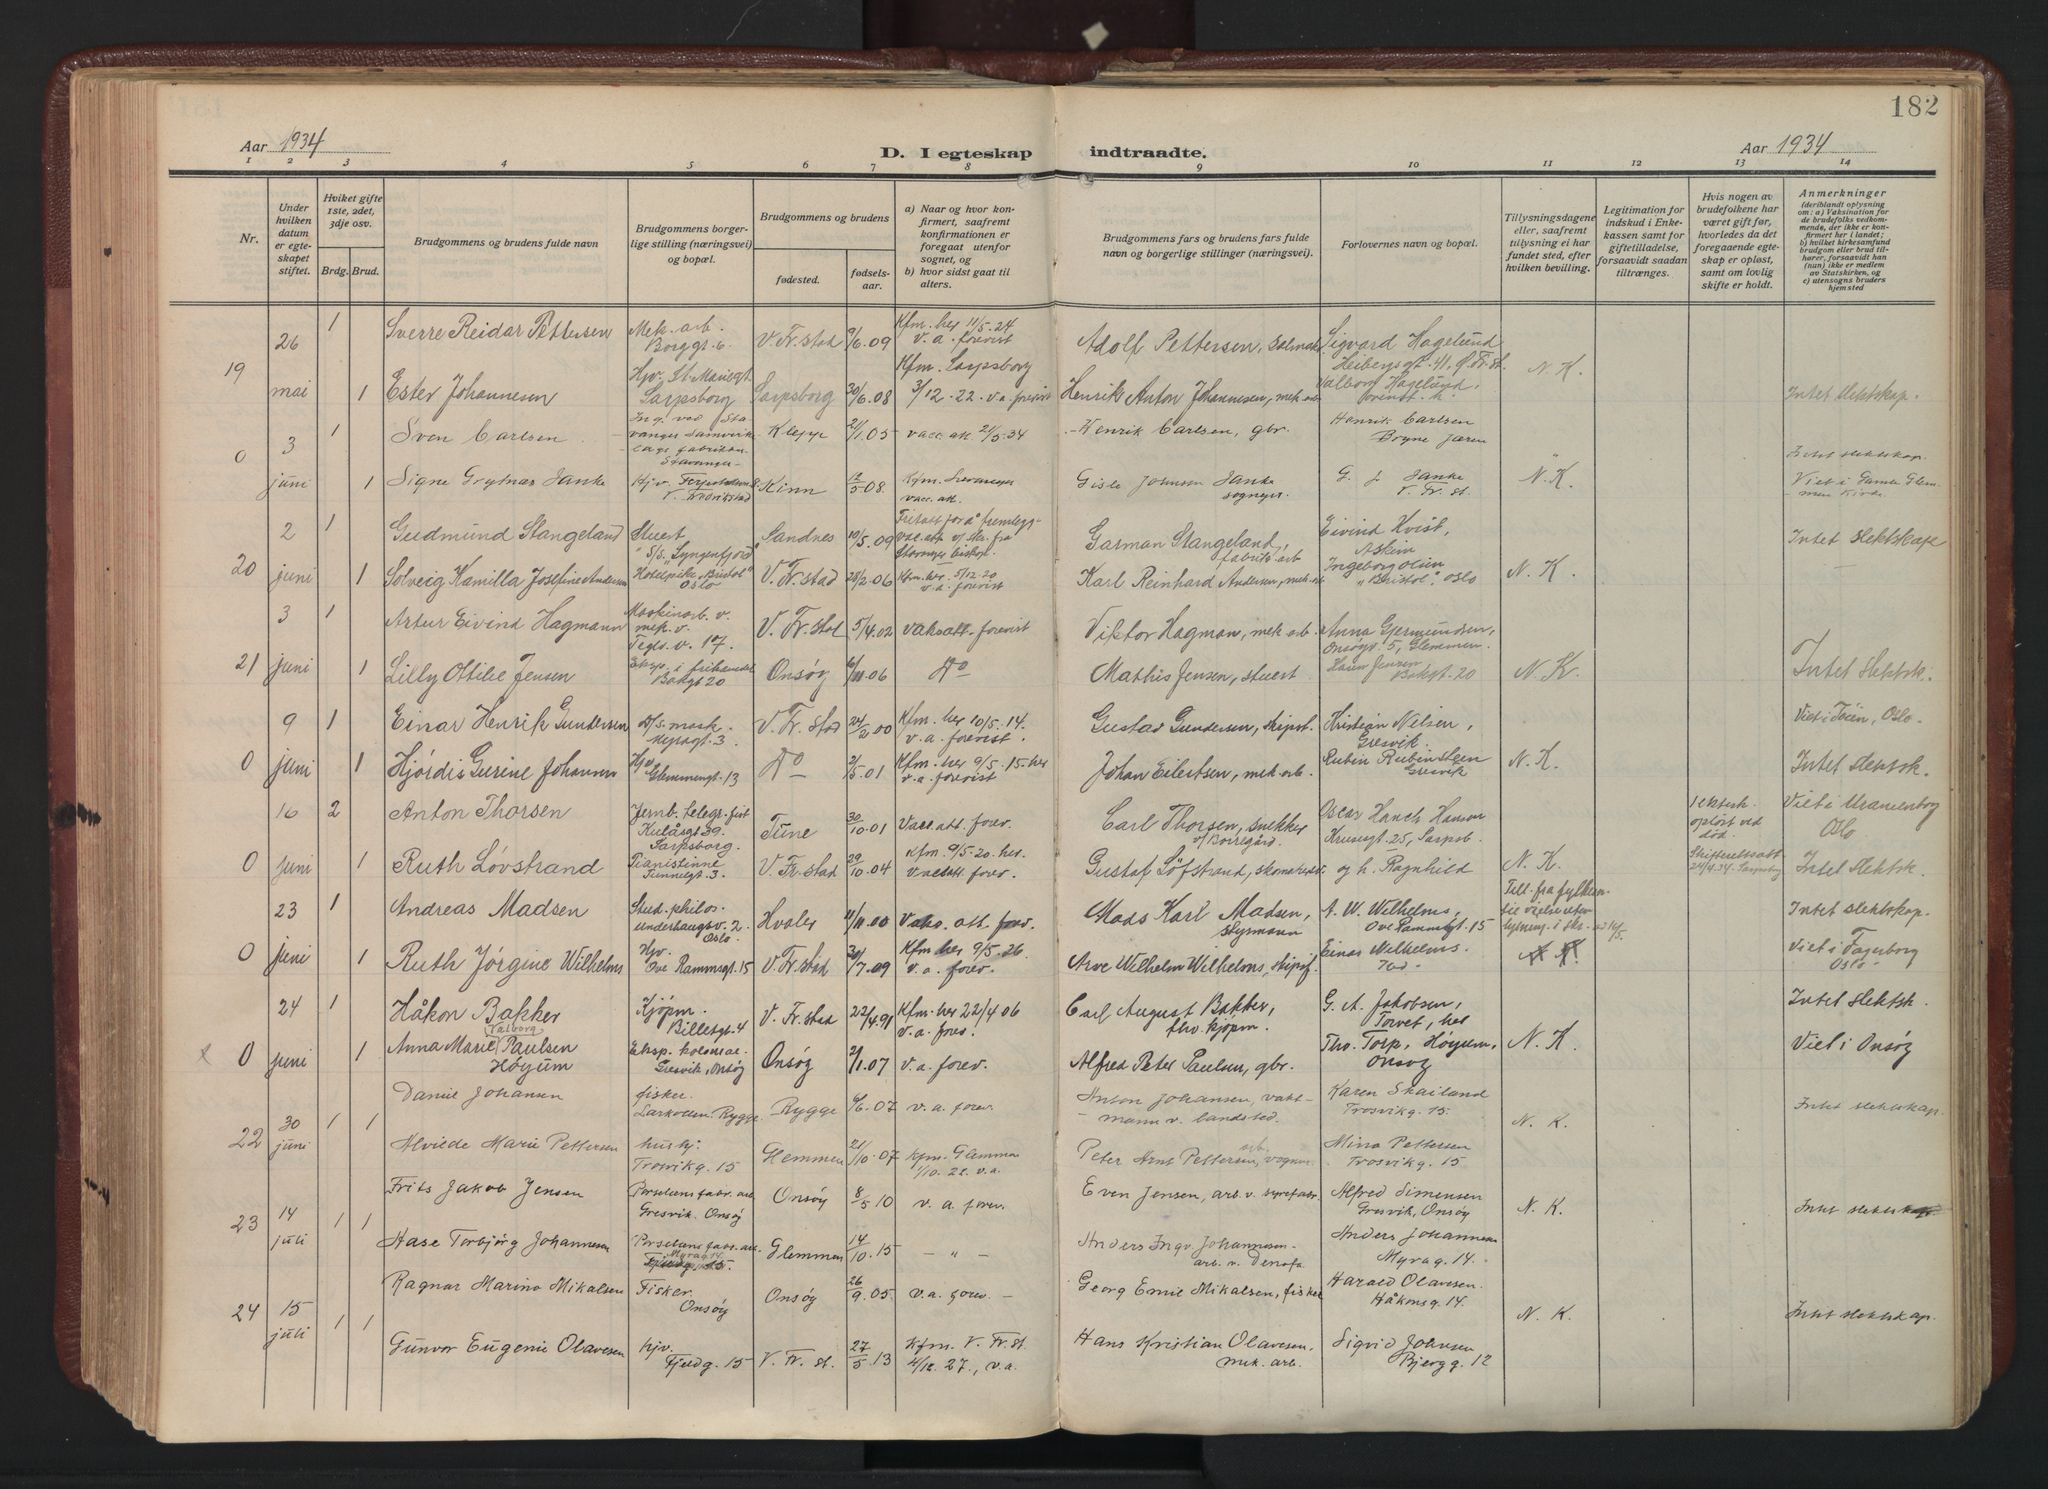 182
Aar 1934
D. I egteskap indtraadte.
Aar 1934
1 2 3 4 5 6 7 8 9 10 11 12 13 14
Nr.
Under hvilken datum er egteskapet stiftet.
Hviket gifte 1ste, 2det, 3dje osv.
Brdg. Brud.
Brudgommens og brudens fulde navn
Brudgommens borgerlige stilling (næringsvei) og bopæl.
Brudgommens og brudens
fødested.
fødselsaar.
a) Naar og hvor konfirmert, saafremt konfirmationen er foregaat utenfor sognet, og
b) hvor sidst gaat til alters.
Brudgommens fars og brudens fars fulde navn og borgerlige stillinger (næringsvei).
Forlovernes navn og bopæl.
Tillysningsdagene eller, saafremt tillysning ei har fundet sted, efter hvilken bevilling.
Legitimation for indskud i Enkekassen samt for giftetilladelse, forsaavidt saadan tiltrænges.
Hvis nogen av brudefolkene har været gift før, hvorledes da det foregaaende egteskap er opløst, samt om lovlig skifte er holdt.
Anmerkninger
(deriblandt oplysning om: a) Vaksination for de brudefolks vedkommende, der ikke er konfirmert her i landet; b) hvilket kirkesamfund brudgom eller brud tilhører, forsaavidt han (hun) ikke er medlem av Statskirken, og c) utensogns bruders hjemsted
19 26 mai 1 Sverre Reidar Pettersen Mek. arb. Borggt. 6. V. Fr. stad 9/6.09 Kfm. her 11/5.24 v. a. forevist Adolf Pettersen, Sigvard Hagelund Heibergsgt. 41, Fr. st.
1 Ester Johannesen Hjv. St. Mariegt. Sarpsborg Sarpsborg 30/6.08 Kfm. Sarpsborg 3/12.22. v.a. forevist Henrik Anton Johannesen, mek. arb. Valborg Hagelund, N. K. Intet slektskap.
0 3 juni 1 Sven Carlsen Ing. ved Stavanger Stavanger Klepp 2/1.05 vacc. att. 2/5.34 Henrik Carlsen, gbr. Henrik Carlsen Bryne Jæren Intet slektskap.
1 Signe Grytnes Hanke Hjv. V. Fredrikstad Kinn 12/5 08. Kfm. vacc. att. Gisle Johnsen Hanke sognepr. G. J. Hanke V. Fr. st. N. K. Viet i Gamle Glemmen Kirke.
20 2 juni 1 Gudmund Stangeland Stuert "S/s. Lyngenfjord" Sandnes 10/5.09 Fritatt for å fremlegge vac. att. v/ skr. fra Stavanger biskop. Garman Stangeland, fabrik. arb. Eivind Kvist, Askim Intet slektskap
1 Solveig Kamilla Josefine Andersen Hotelpike "Bristol" Oslo V. Fr. stad 28/2.06 Kfm. her 5/12.20 v. a. forevist Karl Reinhard Andersen, mek. arb. Ingeborg Olsen "Bristol". Oslo N. K.
21 3 juni 1 Artur Eivind Hagmann Maskinarb. v. mek. v. Tegls. v. 17. V. Fr. stad 5/4.02 vaksatt. forevist Viktor Hagman, mek. arb. Anna Gjermundsen, Onsøgt. 5, Glemmen.
1 Lilly Ottilie Jensen Eksp. i Bakgt 20 Onsøy 6/11.06 Do Mathis Jensen, stuert Jensen Bakgt. 20 N. K. Intet slektsk.
0 9 juni 1 Einar Henrik Gundersen D/s. mask. 3. V. Fr. stad 24/2 00 Kfm. her 10/5.14. v. a. forevist. Gustav Gundersen, skipst. Kristian Nilsen, Gresvik. Viet i Tøien, Oslo.
1 Hjørdis Gurine Johannes Hjv Glemmengt. 13 Do 2/5.01 Kfm. her 9/5.15. her v. a. forevist Johan Eilertsen, mek. arb. Ruben Rubinsteen Gresvik N. K. Intet slektsk.
0 16 juni 2 Anton Thorsen Jernb. telegrafist Kulåsgt 39. Sarpsborg. Tune 30/10.01 Vacc. att. forev. Carl Thorsen, snekker v/ Borregård. Oscar Hansen Krusesgt. 25, Sarpsb. 1 ektesk. opløst ved død. Viet i Uranienborg Oslo
1 Ruth Løvstrand Pianistinne Tunnelgt. 3. V. Fr. stad 29/10.04 Kfm. 9/5.20. her. v. aktatt. forev. Gustaf Löfstrand, skomakerst. og h. Ragnhild N. K. Skifterettsatt 24/4.34. Sarpsborg Intet slektsk.
0 23 juni 1 Andreas Madsen Stud. philos. Underhaugsv. 2. Oslo Hvaler 4/11.00 Vaks. att. forev. Mads Karl Madsen, styrmann A. W. Wilhelms, Ove Rammsgt. 15 Till. fra fylkesm. Intet slektskap.
1 Ruth Jørgine Wilhelms Hjv. Ove Rammsgt. 15 V. Fr. stad 30/7.09 Kfm her 9/5.26. v. a. forev. Arve Wilhelm Wilhelms, skipsf. Einar Wilhelms. N. K. Viet i Fagerborg Oslo
x 0 24 juni 1 Håkon Bakker Kjøpm. Billetgt. 4 V. Fr. stad 22/4.91 Kfm. her 22/4 06 v. a. forev. Carl August Bakker, fhv. kjøpm. G. A. Jakobsen, Torvet, her Intet slektsk.
1 Anna Marie (Valborg) Paulsen Høyum Eksp. kolonial Gresvik, Onsøy Onsøy 2/1.07 v. a. forev. Alfred Peter Paulsen, gbr. Tho. Torp, Høyum, Onsøy N. K. Viet i Onsøy
22 30 juni 1 1 Daniel Johansen fisker. Larkollen. Rygge Rygge 6/6.07 v. a. forev. Anton Johansen, vaktmann v. landsted. Karen Skailand Trosvikg. 15. N. K. Intet slektskap.
Alvilde Marie Pettersen hushj. Trosvikg. 15 Glemmen 21/10.07 Kfm. Glemmen 1/10.22. v.a. Peter Arnt Pettersen, Mina Pettersen Trosvikg. 15
23 14 juli 1 1 Frits Jakob Jensen Porselensfabr. arb. Gresvik. Onsøy Onsøy 8/5 10 v. a. forev. Even Jensen, arb. v. syrefabr. Alfred Simensen Gresvik, Onsøy N. K. Intet slektskap
Aase Torbjørg Johannesen Porselensfabr. arb. Myrag. 14. Glemmen 14/10.15 — " — Anders Ingv. Johannesen arb. v. Denofa Anders Johannesen Myrag. 14.
24 15 juli 1 1 Ragnar Marino Mikalsen Fisker. Onsøy Onsøy 26/9.05. v.a. forev. Georg Emil Mikalsen, fisker Harald Olavesen. Håkonsg. 14. N. K. Intet slektskap.
Gunvor Eugenie Olavesen hjv. Fjeldg. 15 V. Fr. st. 27/5.13 Kfm. V. Fr. st. 4/12.27., v.a. Hans Kristian Olavesen. mek. arb. Sigrid Johnsen Bjergg. 12